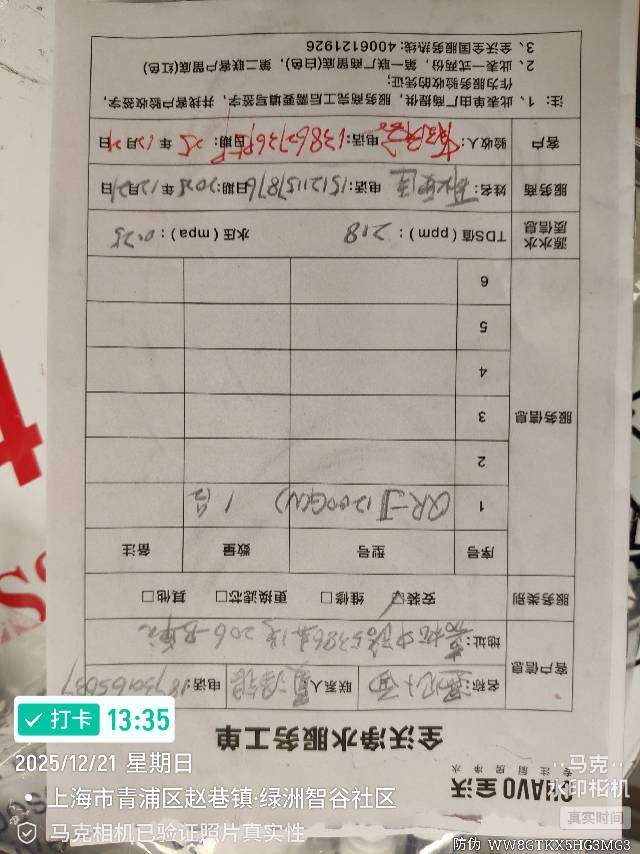 CHAVO全沃
专注厨房净水
全沃净水服务工单
客户信息 名称: 联系人 电话: 18730165087
地址: 嘉松中路5386弄 206
服务类别 安装☑ 维修□ 更换滤芯□ 其他□
服务信息 序号 型号 数量 备注
1 QR-J1200G(N) 1台
2
3
4
5
6
源水水质信息 TDS值(ppm): 218 水压(mpa): 0.25
服务商 姓名: 电话: 15121157876 日期: 2025年12月21日
客户 验收人: 电话: 日期: 25年12月21日
注: 1、此表单由厂商提供,服务商完工后需要填写签字,并找客户验收签字,
作为服务验收的凭证;
2、此表一式两份,第一联厂商留底(白色),第二联客户留底(红色)
3、全沃全国服务热线: 4006121926
打卡 13:35
2025/12/21 星期日
上海市青浦区赵巷镇·绿洲智谷社区
马克相机已验证照片真实性
马克
水印相机
真实时间
防伪 WW8GTKX5HG3MG3